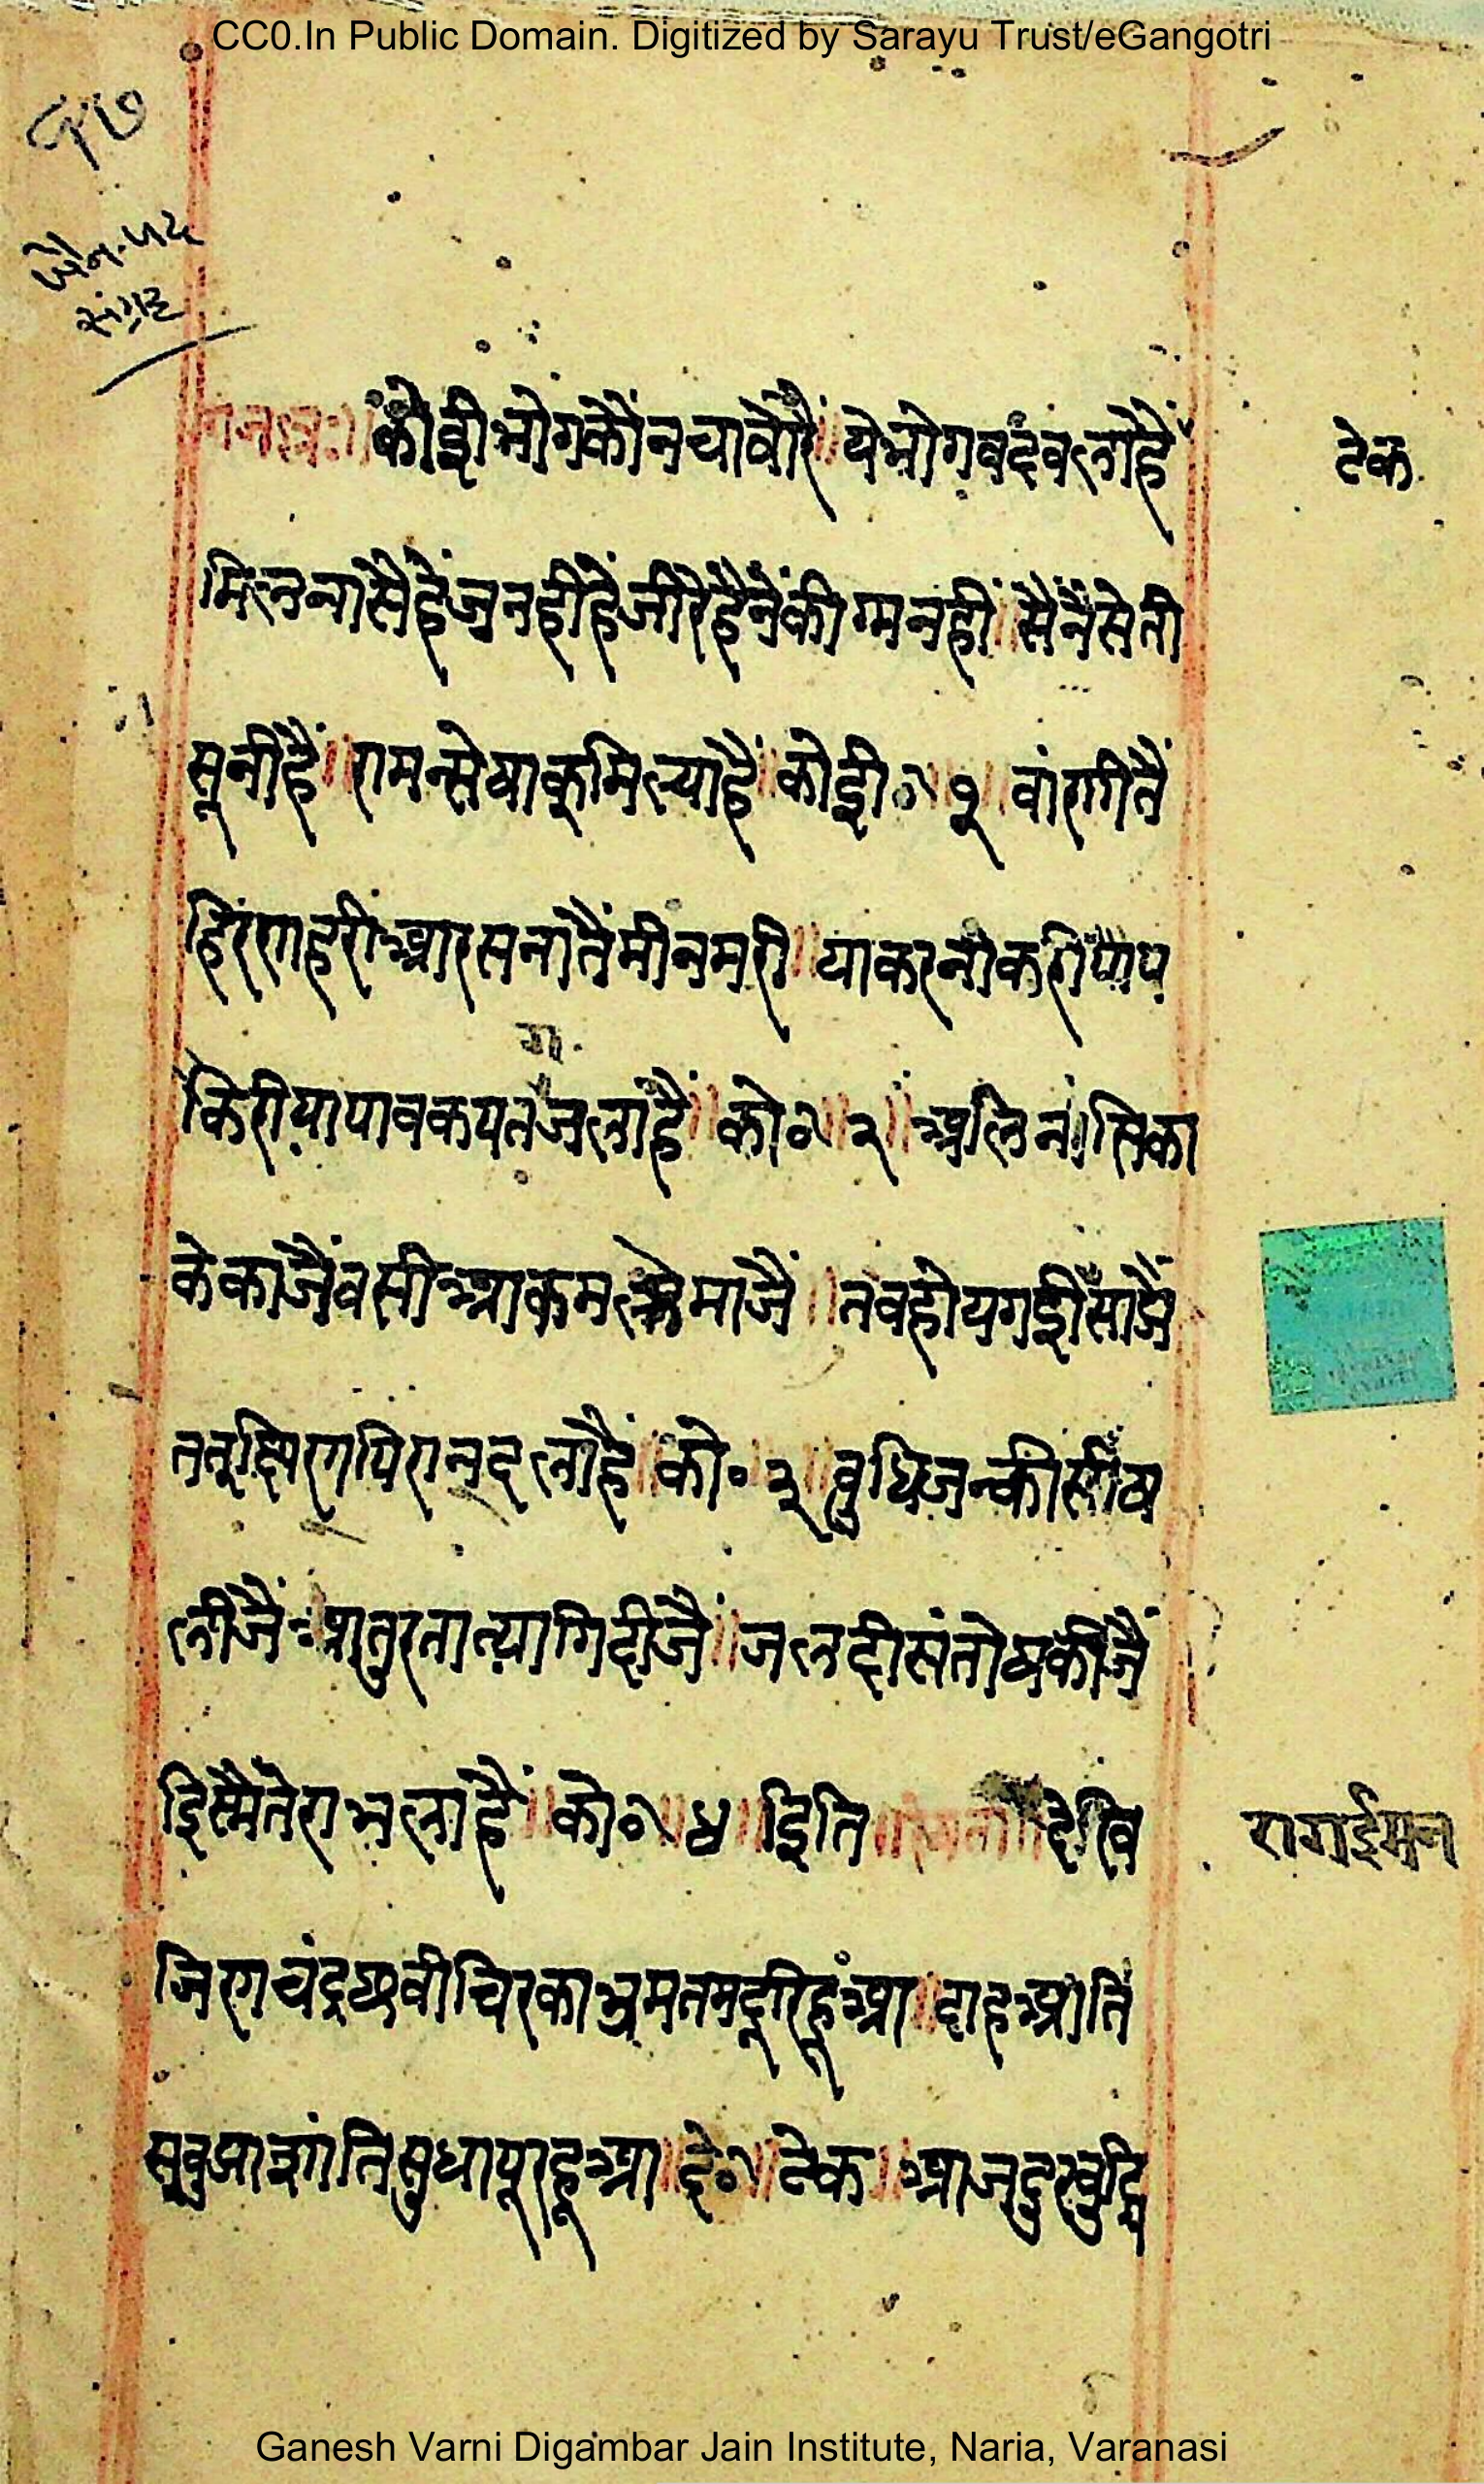 CC0.In Public Domain. Digitized by Sarayu Trust/eGangotri
१७
जैन-पद
संग्रह
कोई भोगकौंनचावोरै ॥ येभोगवदंवलाहैं
टेक
मिलनासैहैंजुनहीहैंजीरेहैंनैंकीगमनहीं ॥ सैंनैंसेती
सूनीहैं ॥ रामन्सेयाकूमिल्याहैं ॥ कोई० ॥ १ ॥ वांणीतैं
हिरंणहरीआरसनातैंमीनमरी ॥ याकरनीकरीपाप
किरीयापावकयतंजलाहैं ॥ को० ॥ २ ॥ अलिनासिका
केकाजैंवसीआकमलमाजैं ॥ तवहोयगईसांजै
ततक्षिणपिरानदलाहैं ॥ को० ३ ॥ वुधिजनकीसीष
लीजैं आतुरतात्यागिदीजैं ॥ जलदीसंतोषकीजैं
इिस्मैंतेराभलाहैं ॥ को० ॥ ४ ॥ इिति ॥ देषि
रागईमन
जिणचंद्रछवीचिरकाभ्रमतमदूरिहूआ ॥ दाहआति
सुवुआशांतिसुधापूरहूआ ॥ दे० ॥ टेक ॥ आज
Ganesh Varni Digambar Jain Institute, Naria, Varanasi